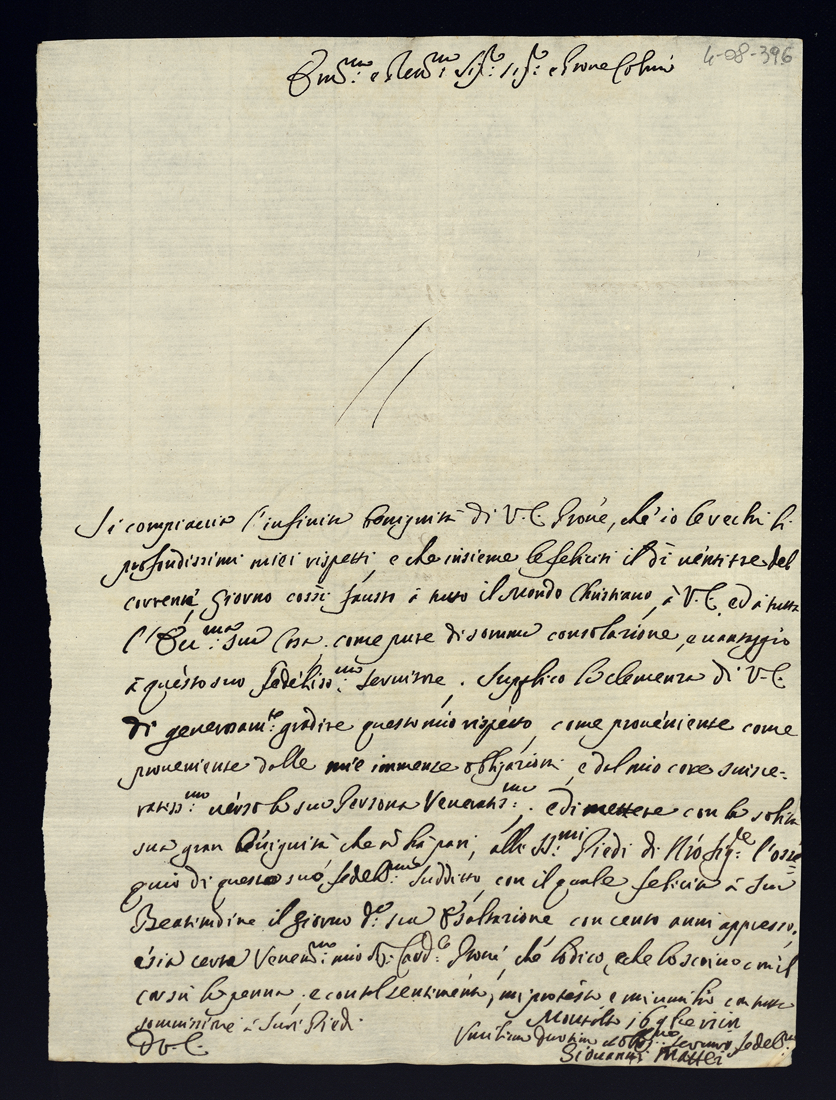 4-08-396
Em.mo e Rev.mo Sig.r Sig.r e Prone Colmo
Si compiaccia l'infinita benignità di V. E. Prone, che io le rechi li
profondissimi miei rispetti, e che insieme le feliciti il dì ventitre del
corrente, Giorno cossì fausto à tutto il Mondo Christiano, à V. E. ed à tutta
l'Ecc.ma sua Casa, come pure di somma consolazione, e vantaggio
à questo suo fedeliss.mo servitore. Supplico la clemenza di V. E.
di generosam.te gradire questo mio rispetto, come proveniente come
proveniente dalle mie immense obligazioni, e dal mio core svisce-
ratiss.mo verso la sua Persona Veneratis.ma; e di mettere con la solita
sua gran Benignità che nõ hà pari, alli SS.mi Piedi di Nrõ Sig.re l'osse=
quio di questo suo fedel.mo suddito, con il quale felicita à Sua
Beatitudine il Giorno d.a sua Esaltazione con cento anni appresso,
e sia certa Vener.mo mio S.r Card.le Prone, che lo dico, e che lo scrivo con il
cor sù la penna, e con tal sentimento, mi protesto e mi umilio con tutta
sommissione à Suoi Piedi.
D V. E.
Montalto 16
Umiliss.mo Divotiss.mo ed Obl.mo Servitore fedel.mo
Giovanni Mattei